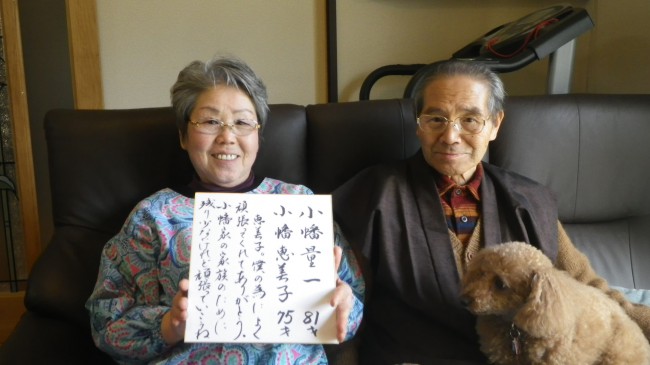 小幡量一 81才
小幡恵美子 75才
恵美子。僕の為によく
頑張ってくれてありがとう。
小幡家の家族のために
残り少ないけれど頑張っていこうね